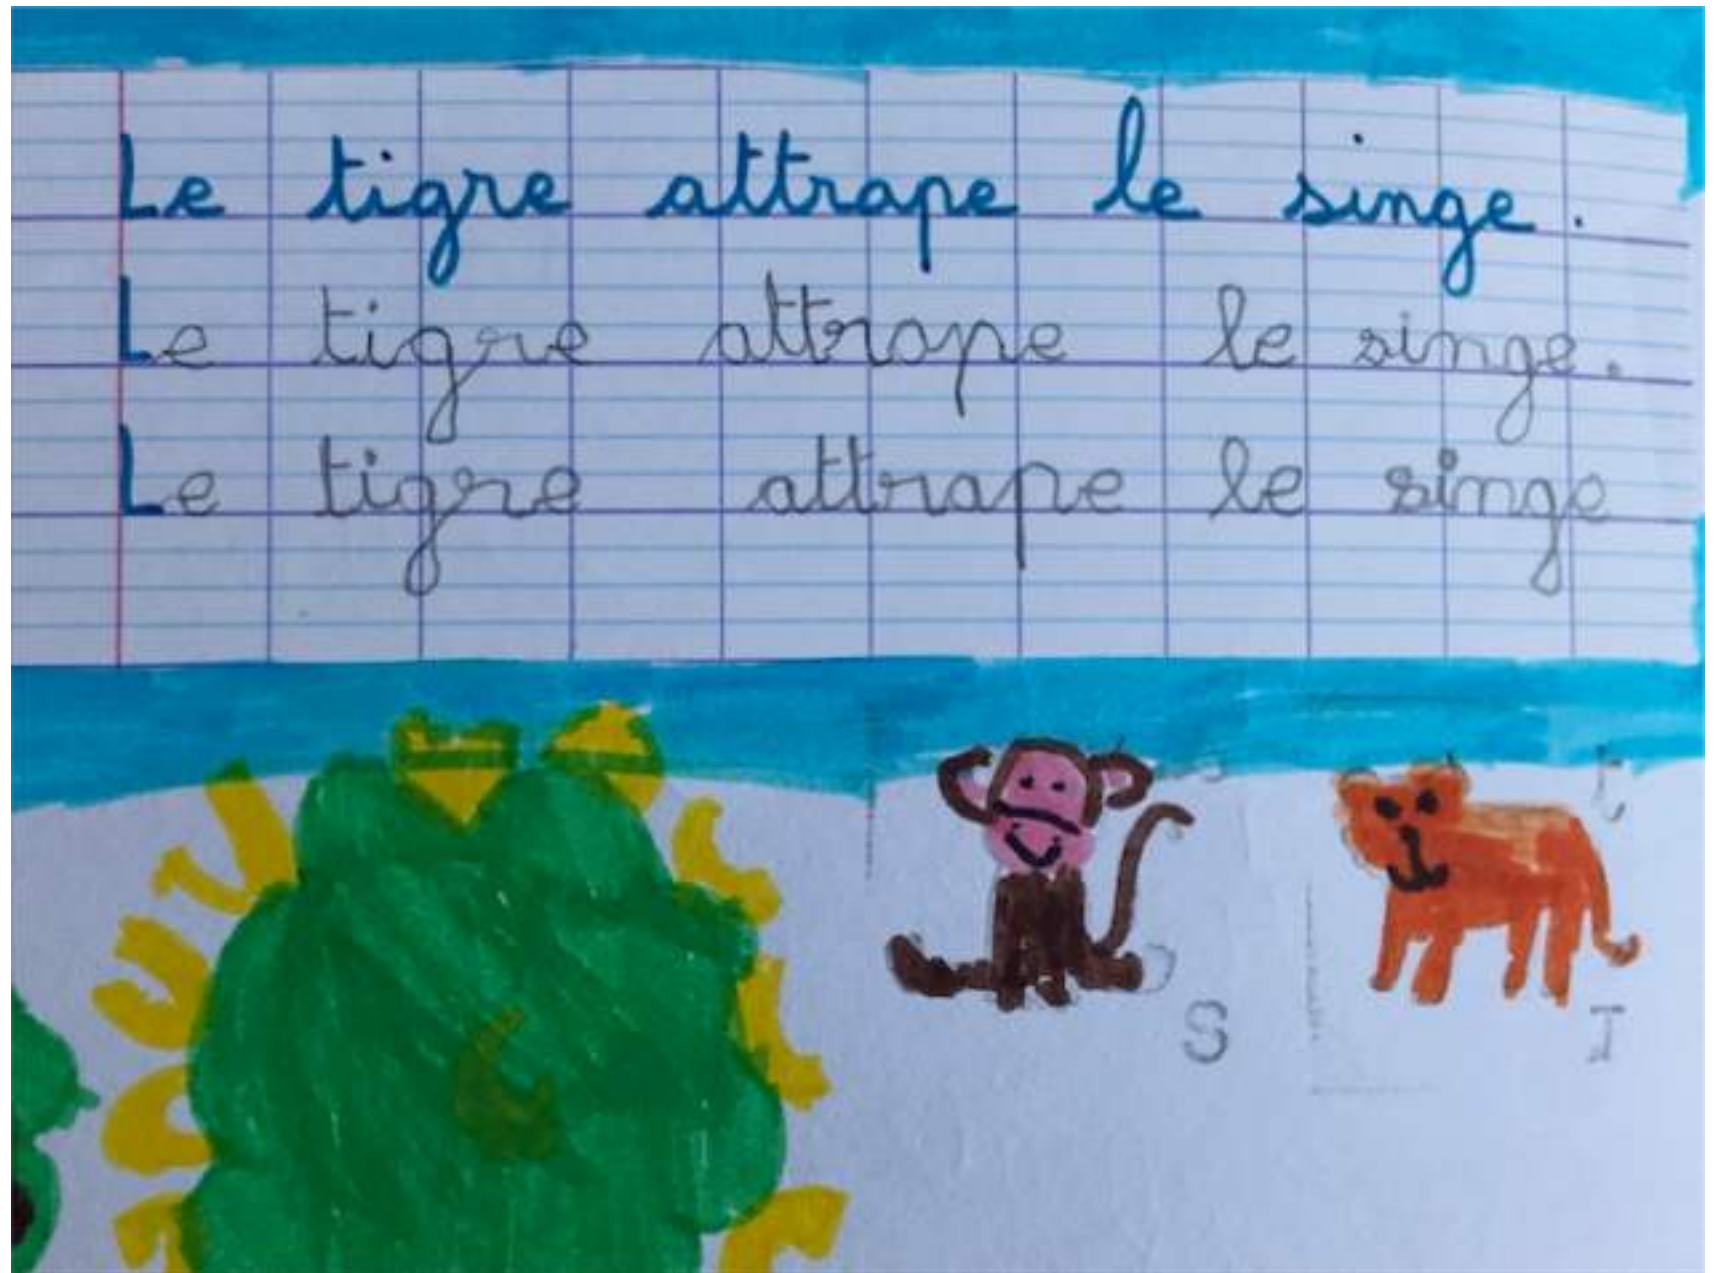 Le tigre attrape le singe.
Le tigre attrape le singe.
Le tigre attrape le singe
t
S